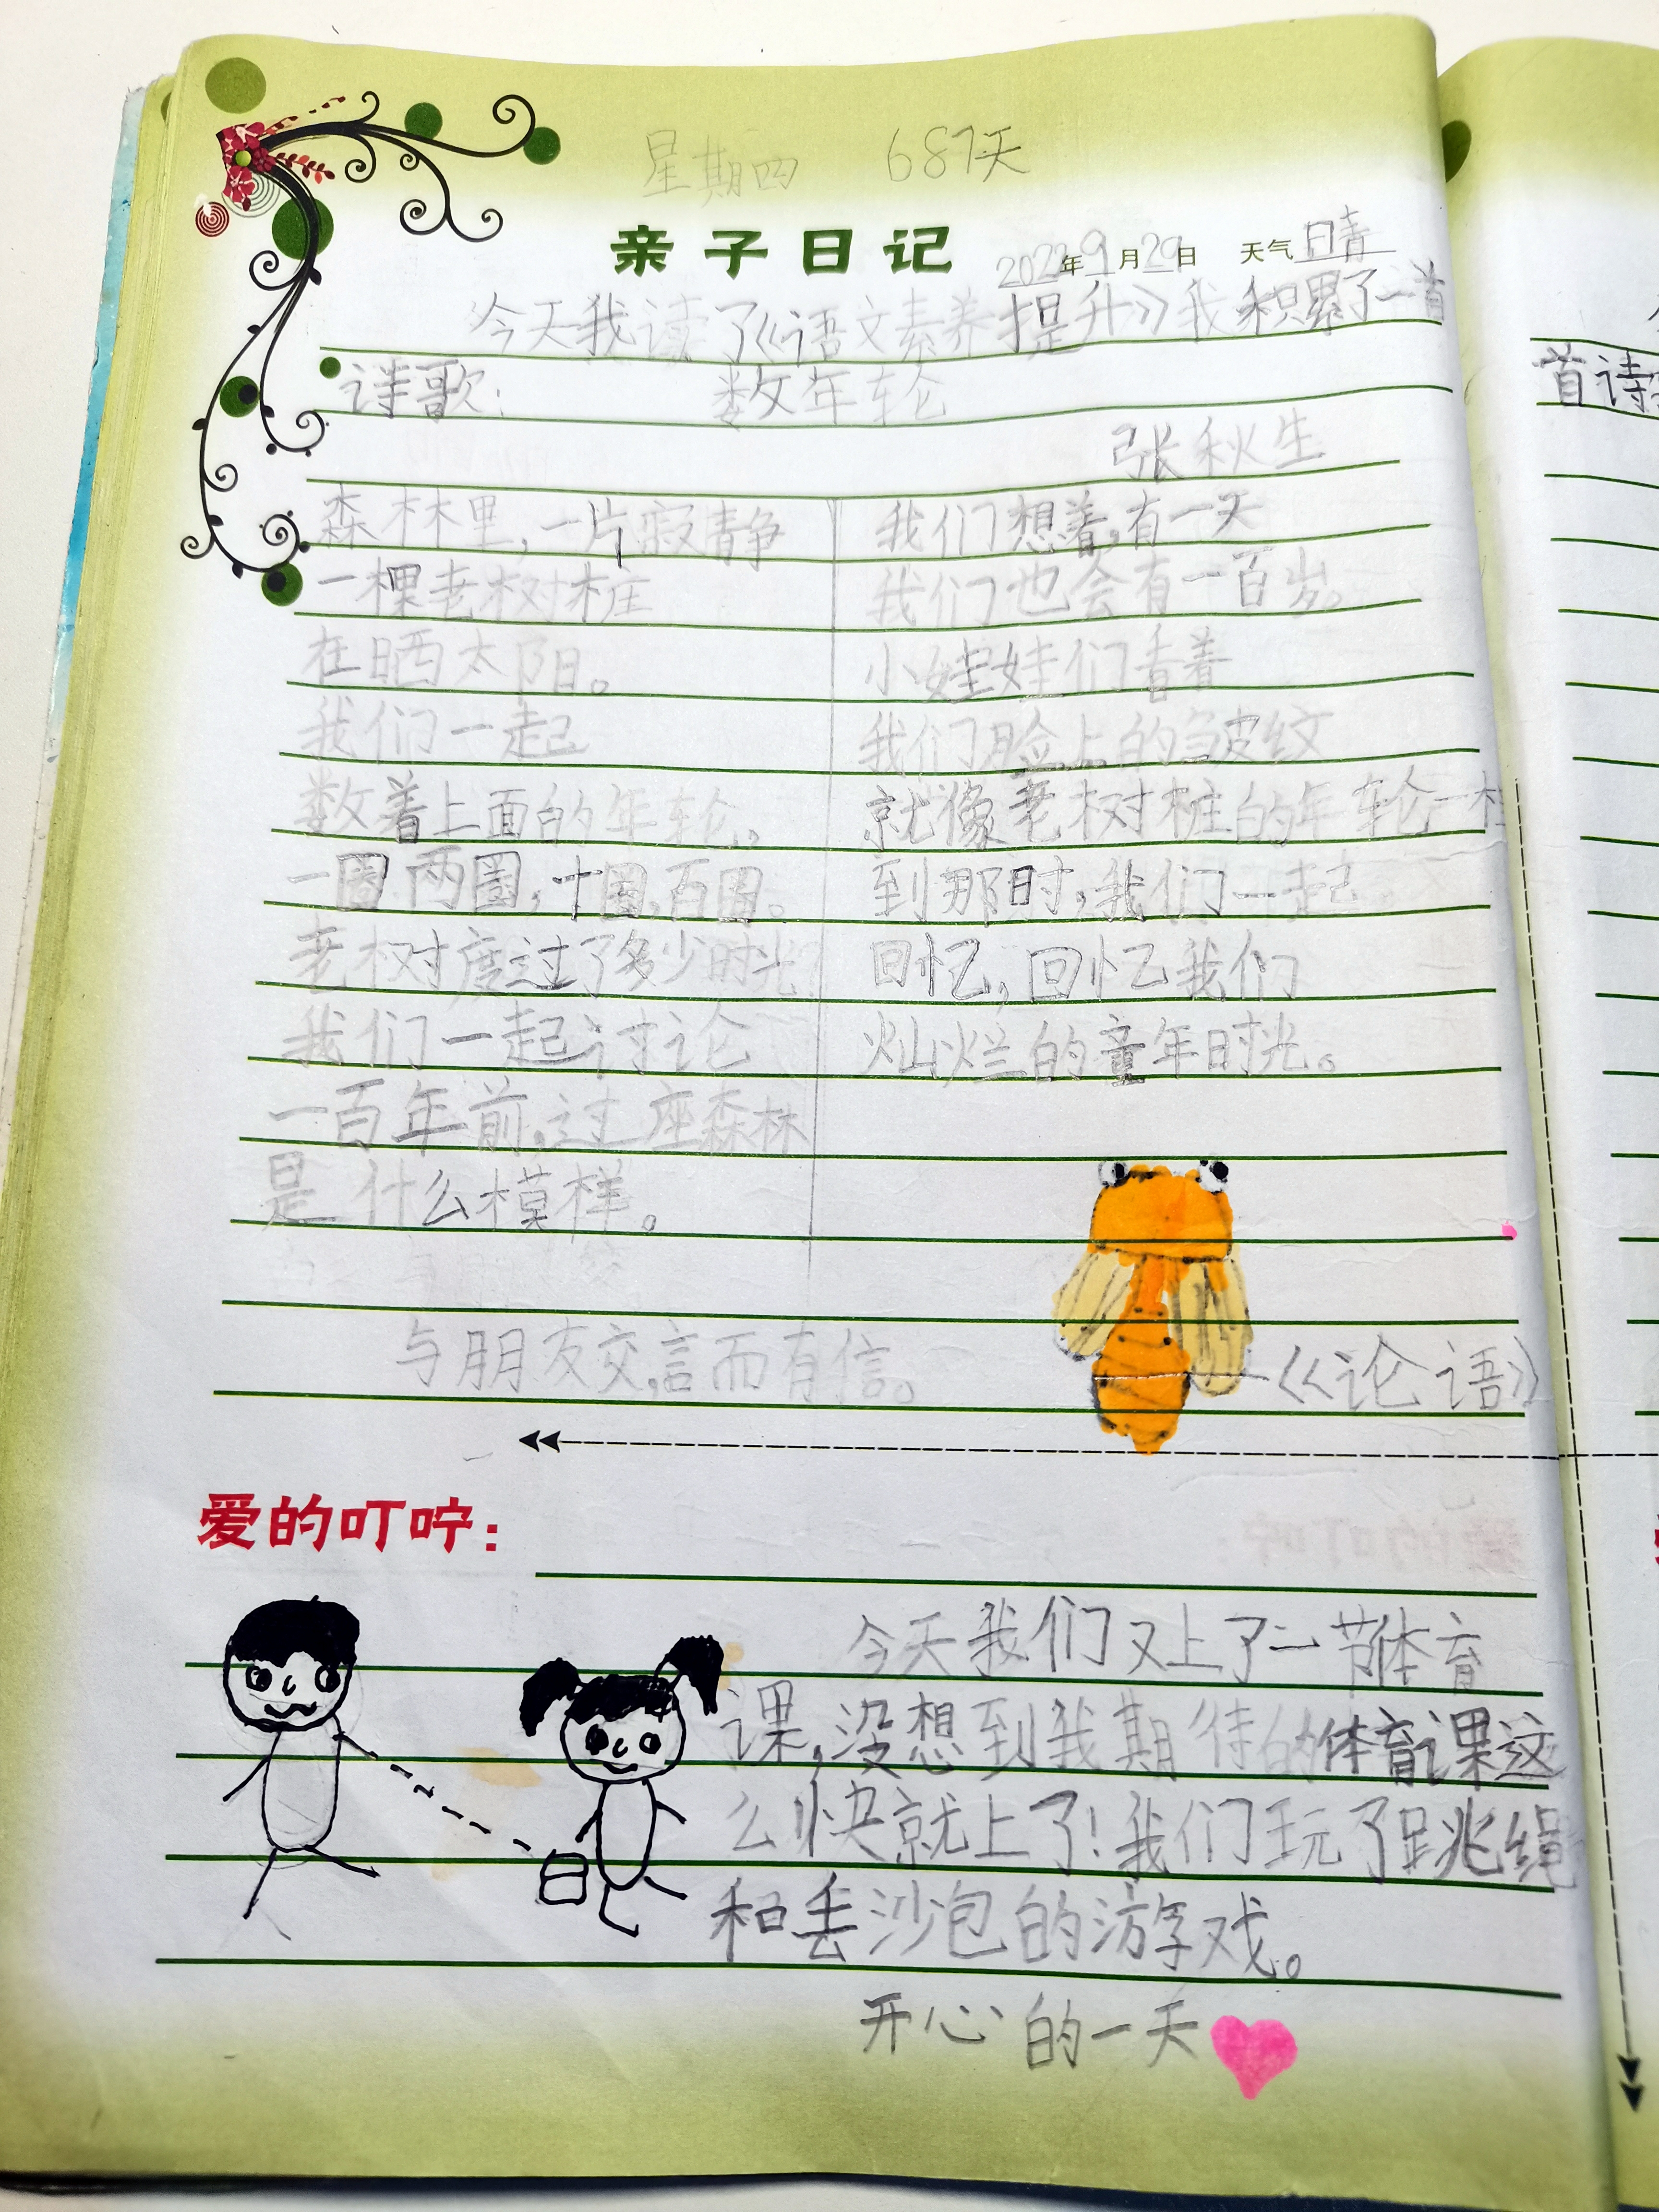 星期四 687天
亲子日记 2022年9月29日 天气 晴
今天我读了《语文素养提升》我积累了一首
诗歌: 数年轮
张秋生
森林里,一片寂静
一棵老树桩
在晒太阳。
我们一起
数着上面的年轮。
一圈 两圈,十圈,百圈。
老树度过了多少时光?
我们一起讨论
一百年前,这座森林
是什么模样。
我们想着,有一天
我们也会有一百岁。
小娃娃们看着
我们脸上的皱纹
就像老树桩的年轮一样
到那时,我们一起
回忆,回忆我们
灿烂的童年时光。
与朋友交,言而有信。 ——《论语》
爱的叮咛:
今天我们又上了一节体育
课,没想到我期待的体育课这
么快就上了!我们玩了跳绳
和丢沙包的游戏。
开心的一天
首诗